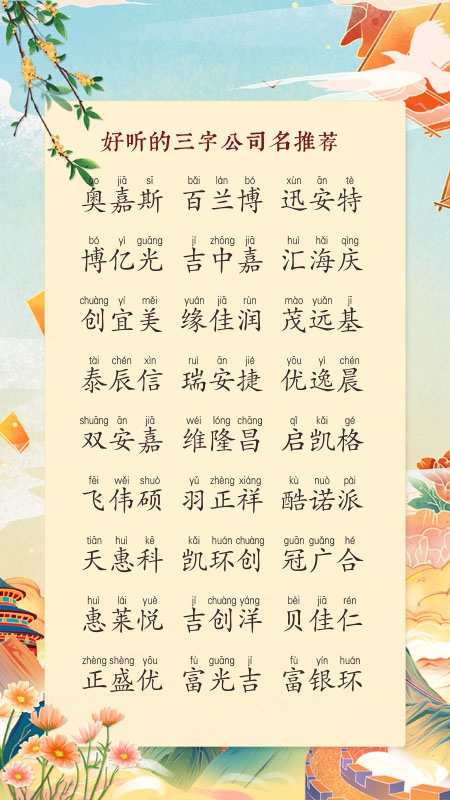 好听的三字公司名推荐
ào jiā sī bǎi lán bó xùn ān tè
奥嘉斯 百兰博 迅安特
bó yì guāng jí zhōng jiā huì hǎi qìng
博亿光 吉中嘉 汇海庆
chuàng yí měi yuán jiā rùn mào yuǎn jī
创宜美 缘佳润 茂远基
tài chén xìn ruì ān jié yōu yì chén
泰辰信 瑞安捷 优逸晨
shuāng ān jiā wéi lóng chāng qǐ kǎi gé
双安嘉 维隆昌 启凯格
fēi wěi shuò yǔ zhèng xiáng kù nuò pài
飞伟硕 羽正祥 酷诺派
tiān huì kē kǎi huán chuàng guān guǎng hé
天惠科 凯环创 冠广合
huì lái yuè jí chuàng yáng bèi jiā rén
惠莱悦 吉创洋 贝佳仁
zhèng shèng yōu fù guāng jí fù yín huán
正盛优 富光吉 富银环